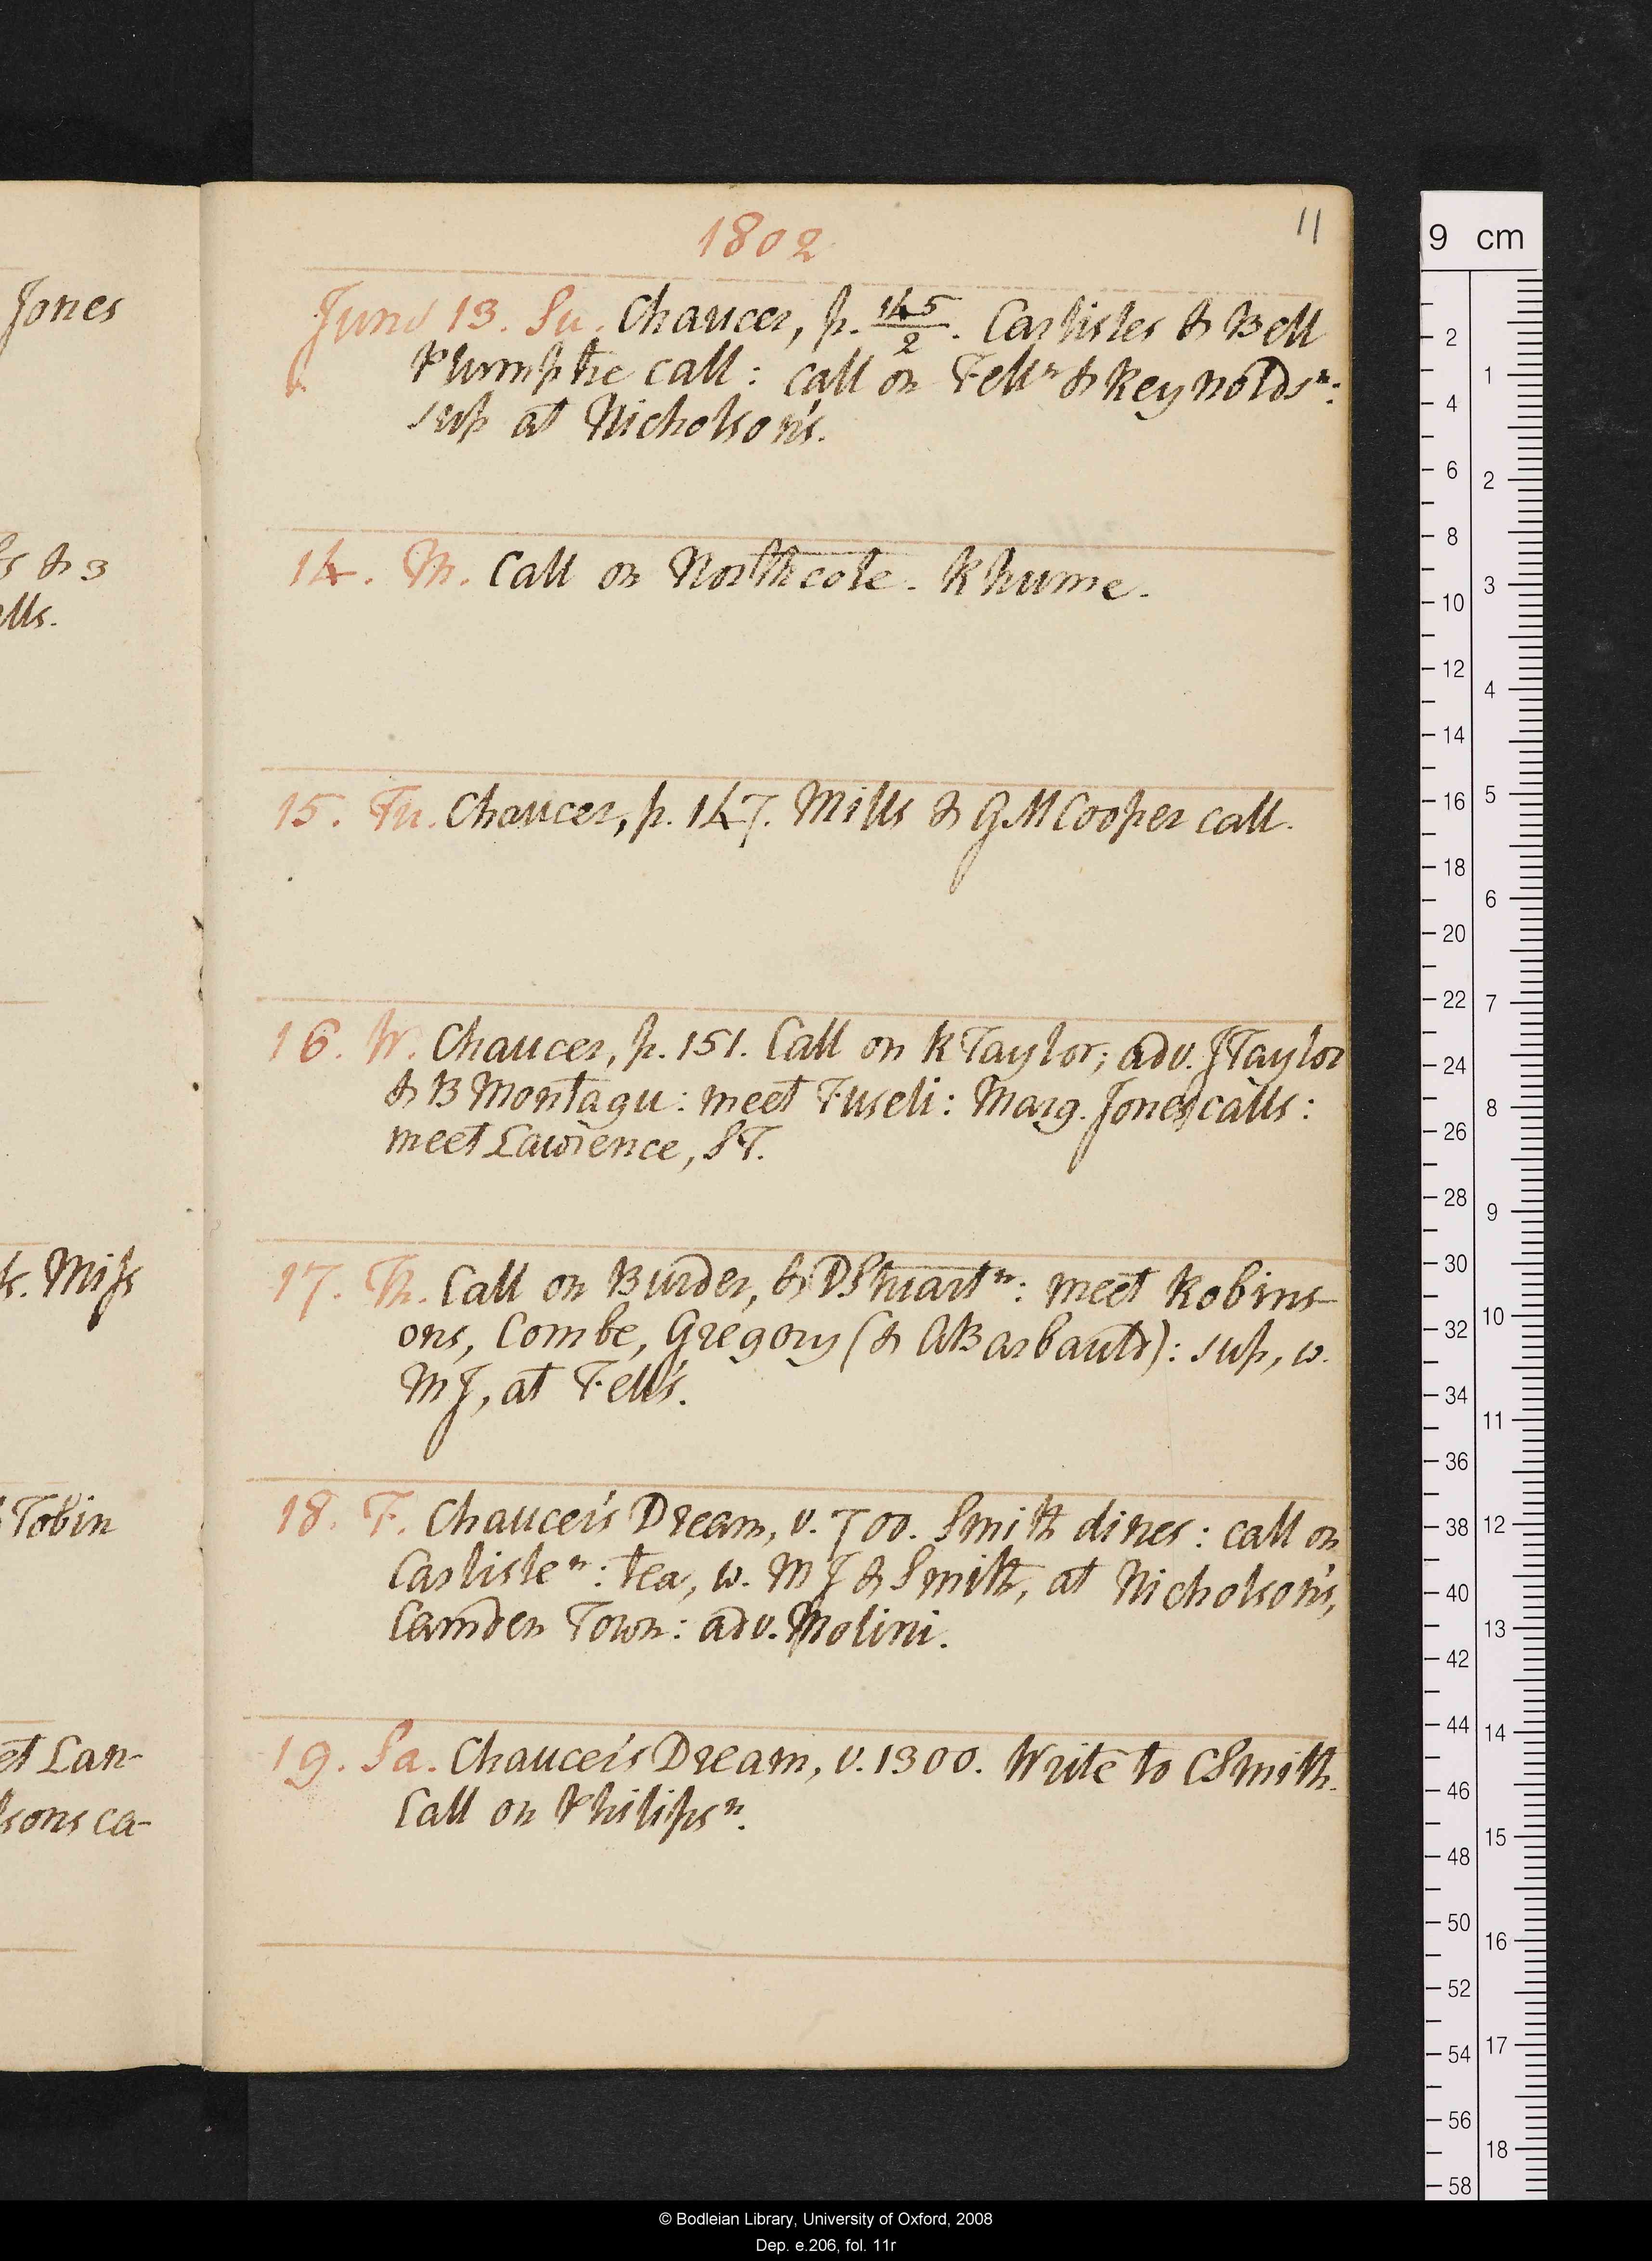 Jones
s & 3
lls.
k. Miss
Tobin
et Lan-
sons ca-
11
1802
June 13. Su. Chaucer, p. 145/2. Carlisles & Bell
Plumptre call: call on Fell n & Reynolds n:
sup at Nicholson's.
14. M. Call on Northcote. Rhume.
15. Tu. Chaucer, p. 147. Mills & GMCooper call.
16. W. Chaucer, p. 151. Call on RTaylor; adv. JTaylor
& BMontagu: meet Fuseli: Marg. Jones calls:
meet Lawrence, ST.
17. Th. Call on Burder, & DStuart n: meet Robins-
ons, Combe, Gregory (& ABarbauld): sup, w.
MJ, at Fell's.
18. F. Chaucer's Dream, v. 700. Smith dines: call on
Carlisle n: tea, w. MJ & Smith, at Nicholson's,
Camden Town: adv. Molini.
19. Sa. Chaucer's Dream, v. 1300. Write to CSmith.
Call on Philips n.
9 cm
2
4
6
8
10
12
14
16
18
20
22
24
26
28
30
32
34
36
38
40
42
44
46
48
50
52
54
56
58
1
2
3
4
5
6
7
8
9
10
11
12
13
14
15
16
17
18
© Bodleian Library, University of Oxford, 2008
Dep. e.206, fol. 11r